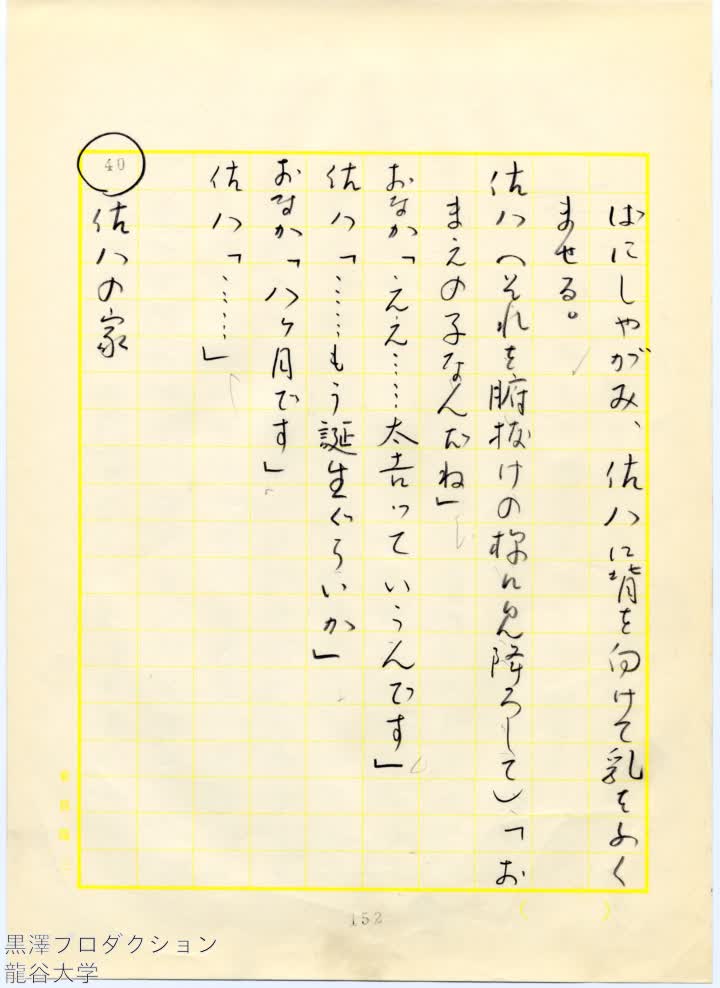 ばにしゃがみ、佐八に背を向けて乳をふく
ませる。
佐八(それを腑抜けの様に見降ろして)「お
まえの子なんだね」
おなか「ええ……太吉っていうんです」
佐八「……もう誕生ぐらいか」
おなか「八ヶ月です」
佐八「……」
40
佐八の家
152
黒澤プロダクション
龍谷大学